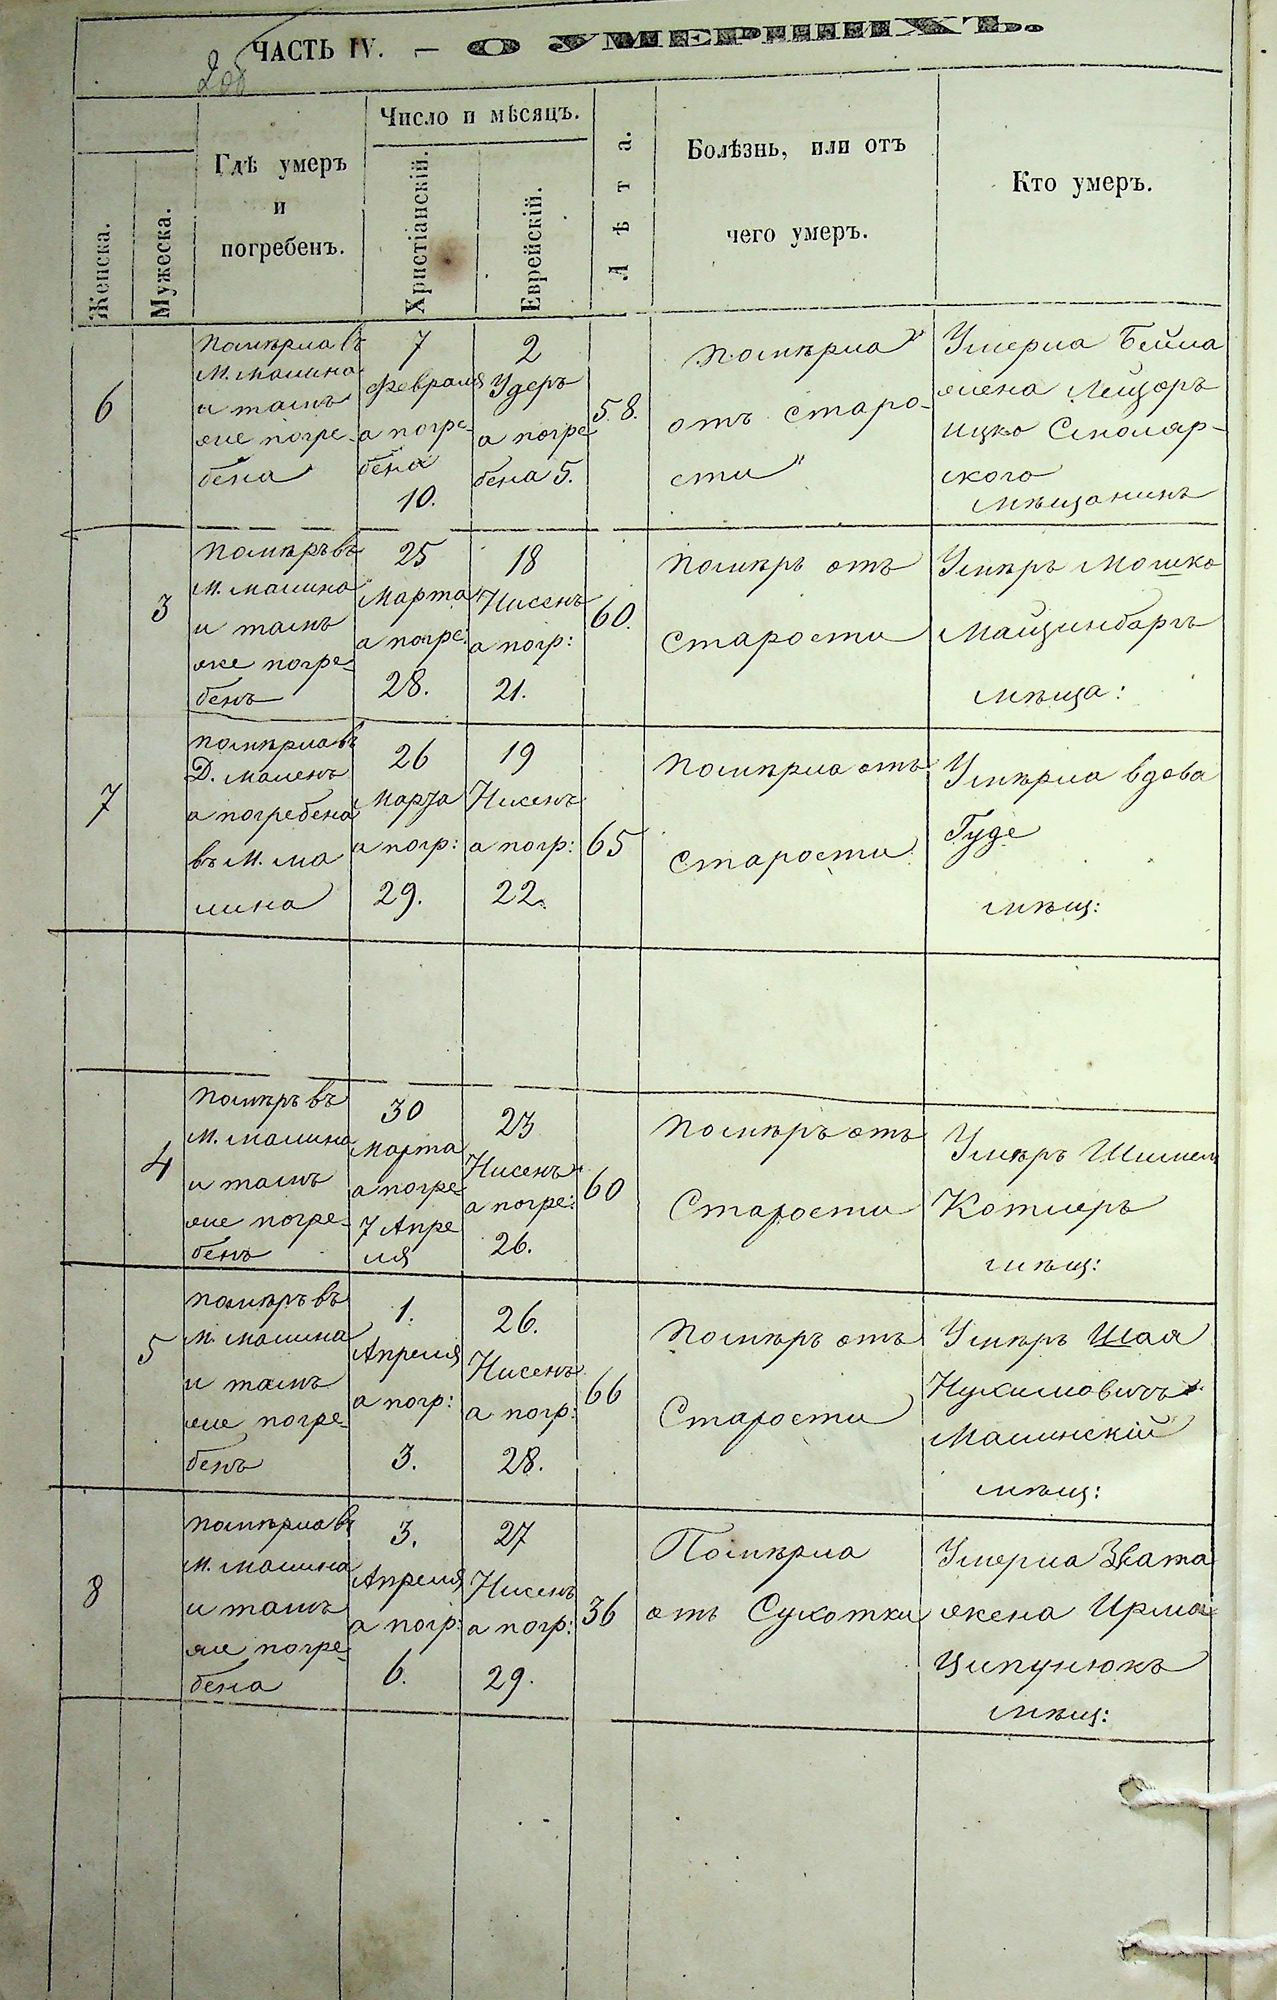 ЧАСТЬ IV. — О УМЕРШИХЪ.
2об
Женска.
Мужеска.
Гдѣ умеръ
и
погребенъ.
Число и мѣсяцъ.
Христіанскій.
Еврейскій.
Лѣта.
Болѣзнь, или отъ
чего умеръ.
Кто умеръ.
6
помѣрла въ
М. Малина
и тамъ
же погре-
бена
7
Февраля
а погре-
бена
10.
2
Удеръ
а погре
бена 5.
58.
Помѣрла
отъ старо-
сти
Умерла Бейла
жена
Ицко Столяр-
ского
мѣщанинъ
3
помѣръ въ
М. Малина
и тамъ
же погре-
бенъ
25
Марта
а погре:
28.
18
Нисенъ
а погр:
21.
60.
помѣръ отъ
старости
Умѣръ Мошко
Майзинбергъ
мѣща:
7
помѣрла въ
Д. Маленъ
а погребена
въ М. Ма
лина
26
Марта
а погр:
29.
19
Нисенъ
а погр:
22.
65
помѣрла отъ
старости
Умѣрла вдова
Гуде
мѣщ:
4
помѣръ въ
М. Малина
и тамъ
же погре-
бенъ
30
Марта
а погре
7 Апре
ля
23
Нисенъ
а погре:
26.
60
помѣръ отъ
Старости
Умѣръ Шимель
Котлеръ
мѣщ:
5
помѣръ въ
М. Малина
и тамъ
же погре-
бенъ
1.
Апреля
а погр:
3.
26.
Нисенъ
а погр:
28.
66
помѣръ отъ
Старости
Умѣръ Шая
Нухимовичъ
Малинскій
мѣщ:
8
помѣрла въ
М. Малина
и тамъ
же погре-
бена
3.
Апреля
а погр:
6.
27
Нисенъ
а погр:
29.
36
Помѣрла
отъ Сухотки
Умерла Злата
жена Ирма
Ципунюкъ
мѣщ: